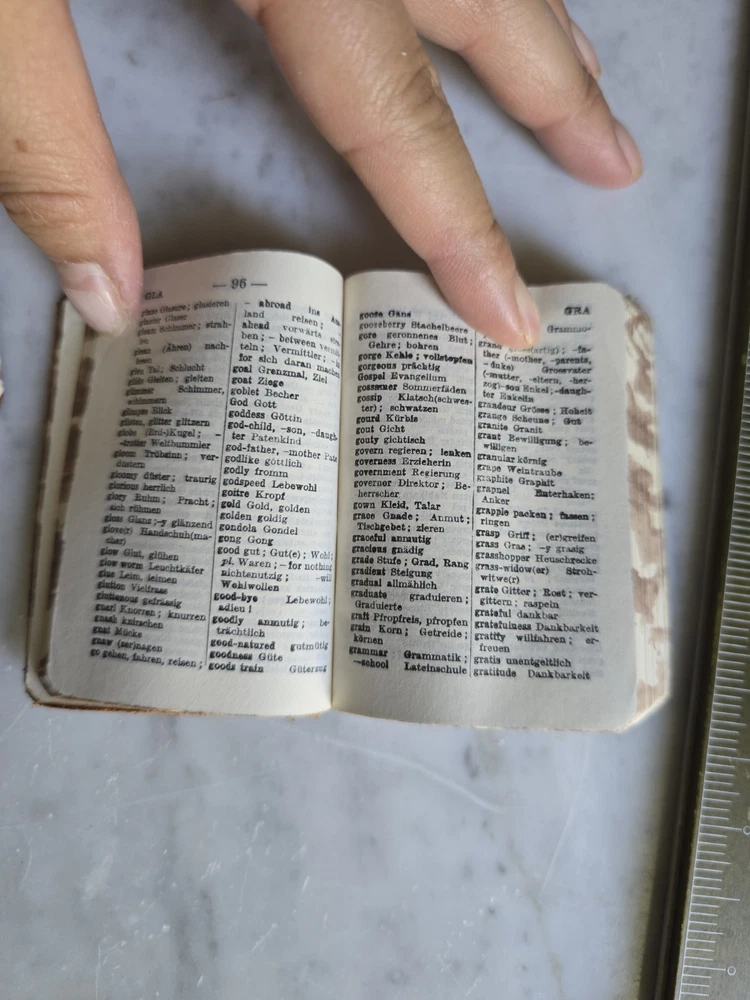 GLA
— 96 —
glaze Glasur; glasieren
glazier Glaser
gleam Schimmer; strah-
len
glean (Ähren) nach-
lesen
glen Tal; Schlucht
glide Gleiten; gleiten
glimmer Schimmer,
schimmern
glimpse Blick
glisten, glitter glitzern
globe (Erd-)Kugel; –
-trotter Weltbummler
gloom Trübsinn; ver-
düstern
gloomy düster; traurig
glorious herrlich
glory Ruhm; Pracht;
sich rühmen
gloss Glanz; -y glänzend
glove(r) Handschuh(ma-
cher)
glow Glut, glühen
glow worm Leuchtkäfer
glue Leim, leimen
glutton Vielfrass
gluttonous gefrässig
gnarl Knorren; knurren
gnash knirschen
gnat Mücke
gnaw (zer)nagen
go gehen, fahren, reisen;
- abroad ins Aus-
land reisen;
ahead vorwärts
ben; - between vermit-
teln; Vermittler; - in
for sich daran machen
goal Grenzmal, Ziel
goat Ziege
goblet Becher
God Gott
goddess Göttin
god-child, -son, -daugh-
ter Patenkind
god-father, -mother Pate
godlike göttlich
godly fromm
godspeed Lebewohl
goitre Kropf
gold Gold, golden
golden goldig
gondola Gondel
gong Gong
good gut; Gut(e); Wohl;
pl. Waren; – for nothing
nichtsnutzig; -will
Wohlwollen
good-bye Lebewohl;
adieu!
goodly anmutig; be-
trächtlich
good-natured gutmütig
goodness Güte
goods train Güterzug
GRA
goose Gans
gooseberry Stachelbeere
gore geronnenes Blut;
Gehre; bohren
gorge Kehle; vollstopfen
gorgeous prächtig
Gospel Evangelium
gossamer Sommerfäden
gossip Klatsch(schwes-
ter); schwatzen
gourd Kürbis
gout Gicht
gouty gichtisch
govern regieren; lenken
governess Erzieherin
government Regierung
governor Direktor; Be-
herrscher
gown Kleid, Talar
grace Gnade; Anmut;
Tischgebet; zieren
graceful anmutig
gracious gnädig
grade Stufe; Grad, Rang
gradient Steigung
gradual allmählich
graduate graduieren;
Graduierte
graft Pfropfreis, pfropfen
grain Korn; Getreide;
körnen
grammar Grammatik;
–school Lateinschule
Grammo-
grand gross(artig); -fa-
ther (-mother, -parents,
-duke) Grossvater
(-mutter, -eltern, -her-
zog) -son Enkel; -daugh-
ter Enkelin
grandeur Grösse; Hoheit
grange Scheune; Gut
granite Granit
grant Bewilligung; be-
willigen
granular körnig
grape Weintraube
graphite Graphit
grapnel Enterhaken;
Anker
grapple packen; fassen;
ringen
grasp Griff; (er)greifen
grass Gras; -y grasig
grasshopper Heuschrecke
grass-widow(er) Stroh-
witwe(r)
grate Gitter; Rost; ver-
gittern; raspeln
grateful dankbar
gratefulness Dankbarkeit
gratify willfahren; er-
freuen
gratis unentgeltlich
gratitude Dankbarkeit